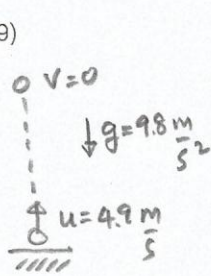 9)
v=0
↓g=9.8 m/s²
u=4.9 m/s